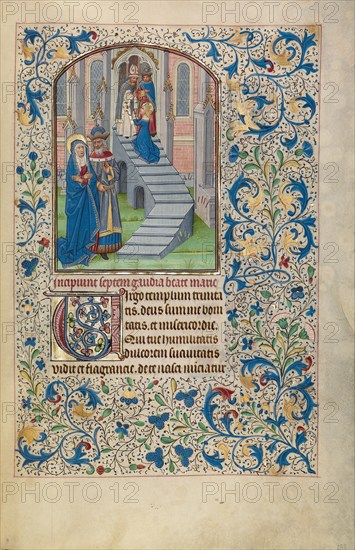 Incipiunt septem gaudia beate marie
Virgo templum trinita
tis. deus summe boni
tatis. et misericordie.
Qui tue humilitatis
dulcorem suavitatis
vidit et fragrancie. de te nasci
PHOTO 12